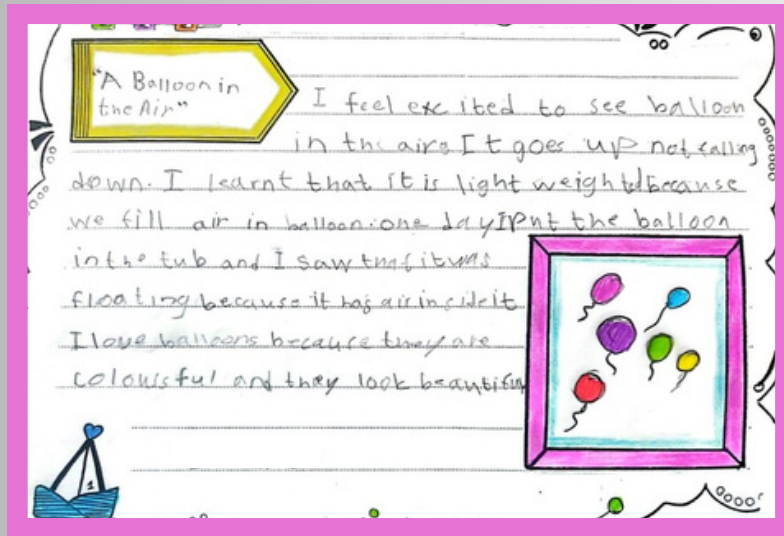 "A Balloon in
the Air"
I feel excited to see balloon
in the air. It goes up not falling
down. I learnt that it is light weighted because
we fill air in balloon. one day I Put the balloon
in the tub and I saw that it was
floating because it has air in side it
I love balloons because they are
coloursful and they look beautiful